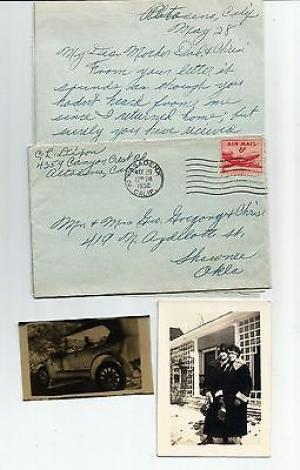 Altadena, Calif
May 28
My Dear Mother Dad & Chris:
From your letter it
sounds as though you
hadn't heard from me
since I returned home; but
surely you have received
C L Dixon
4354 Canyon Crest Rd
Altadena, Calif
PASADENA
MAY 29
12 PM
1950
CALIF.
AIR MAIL
6¢
Mr & Mrs Geo. Gregory & Chris
419 N. Aydelotte St,
Shawnee
Okla